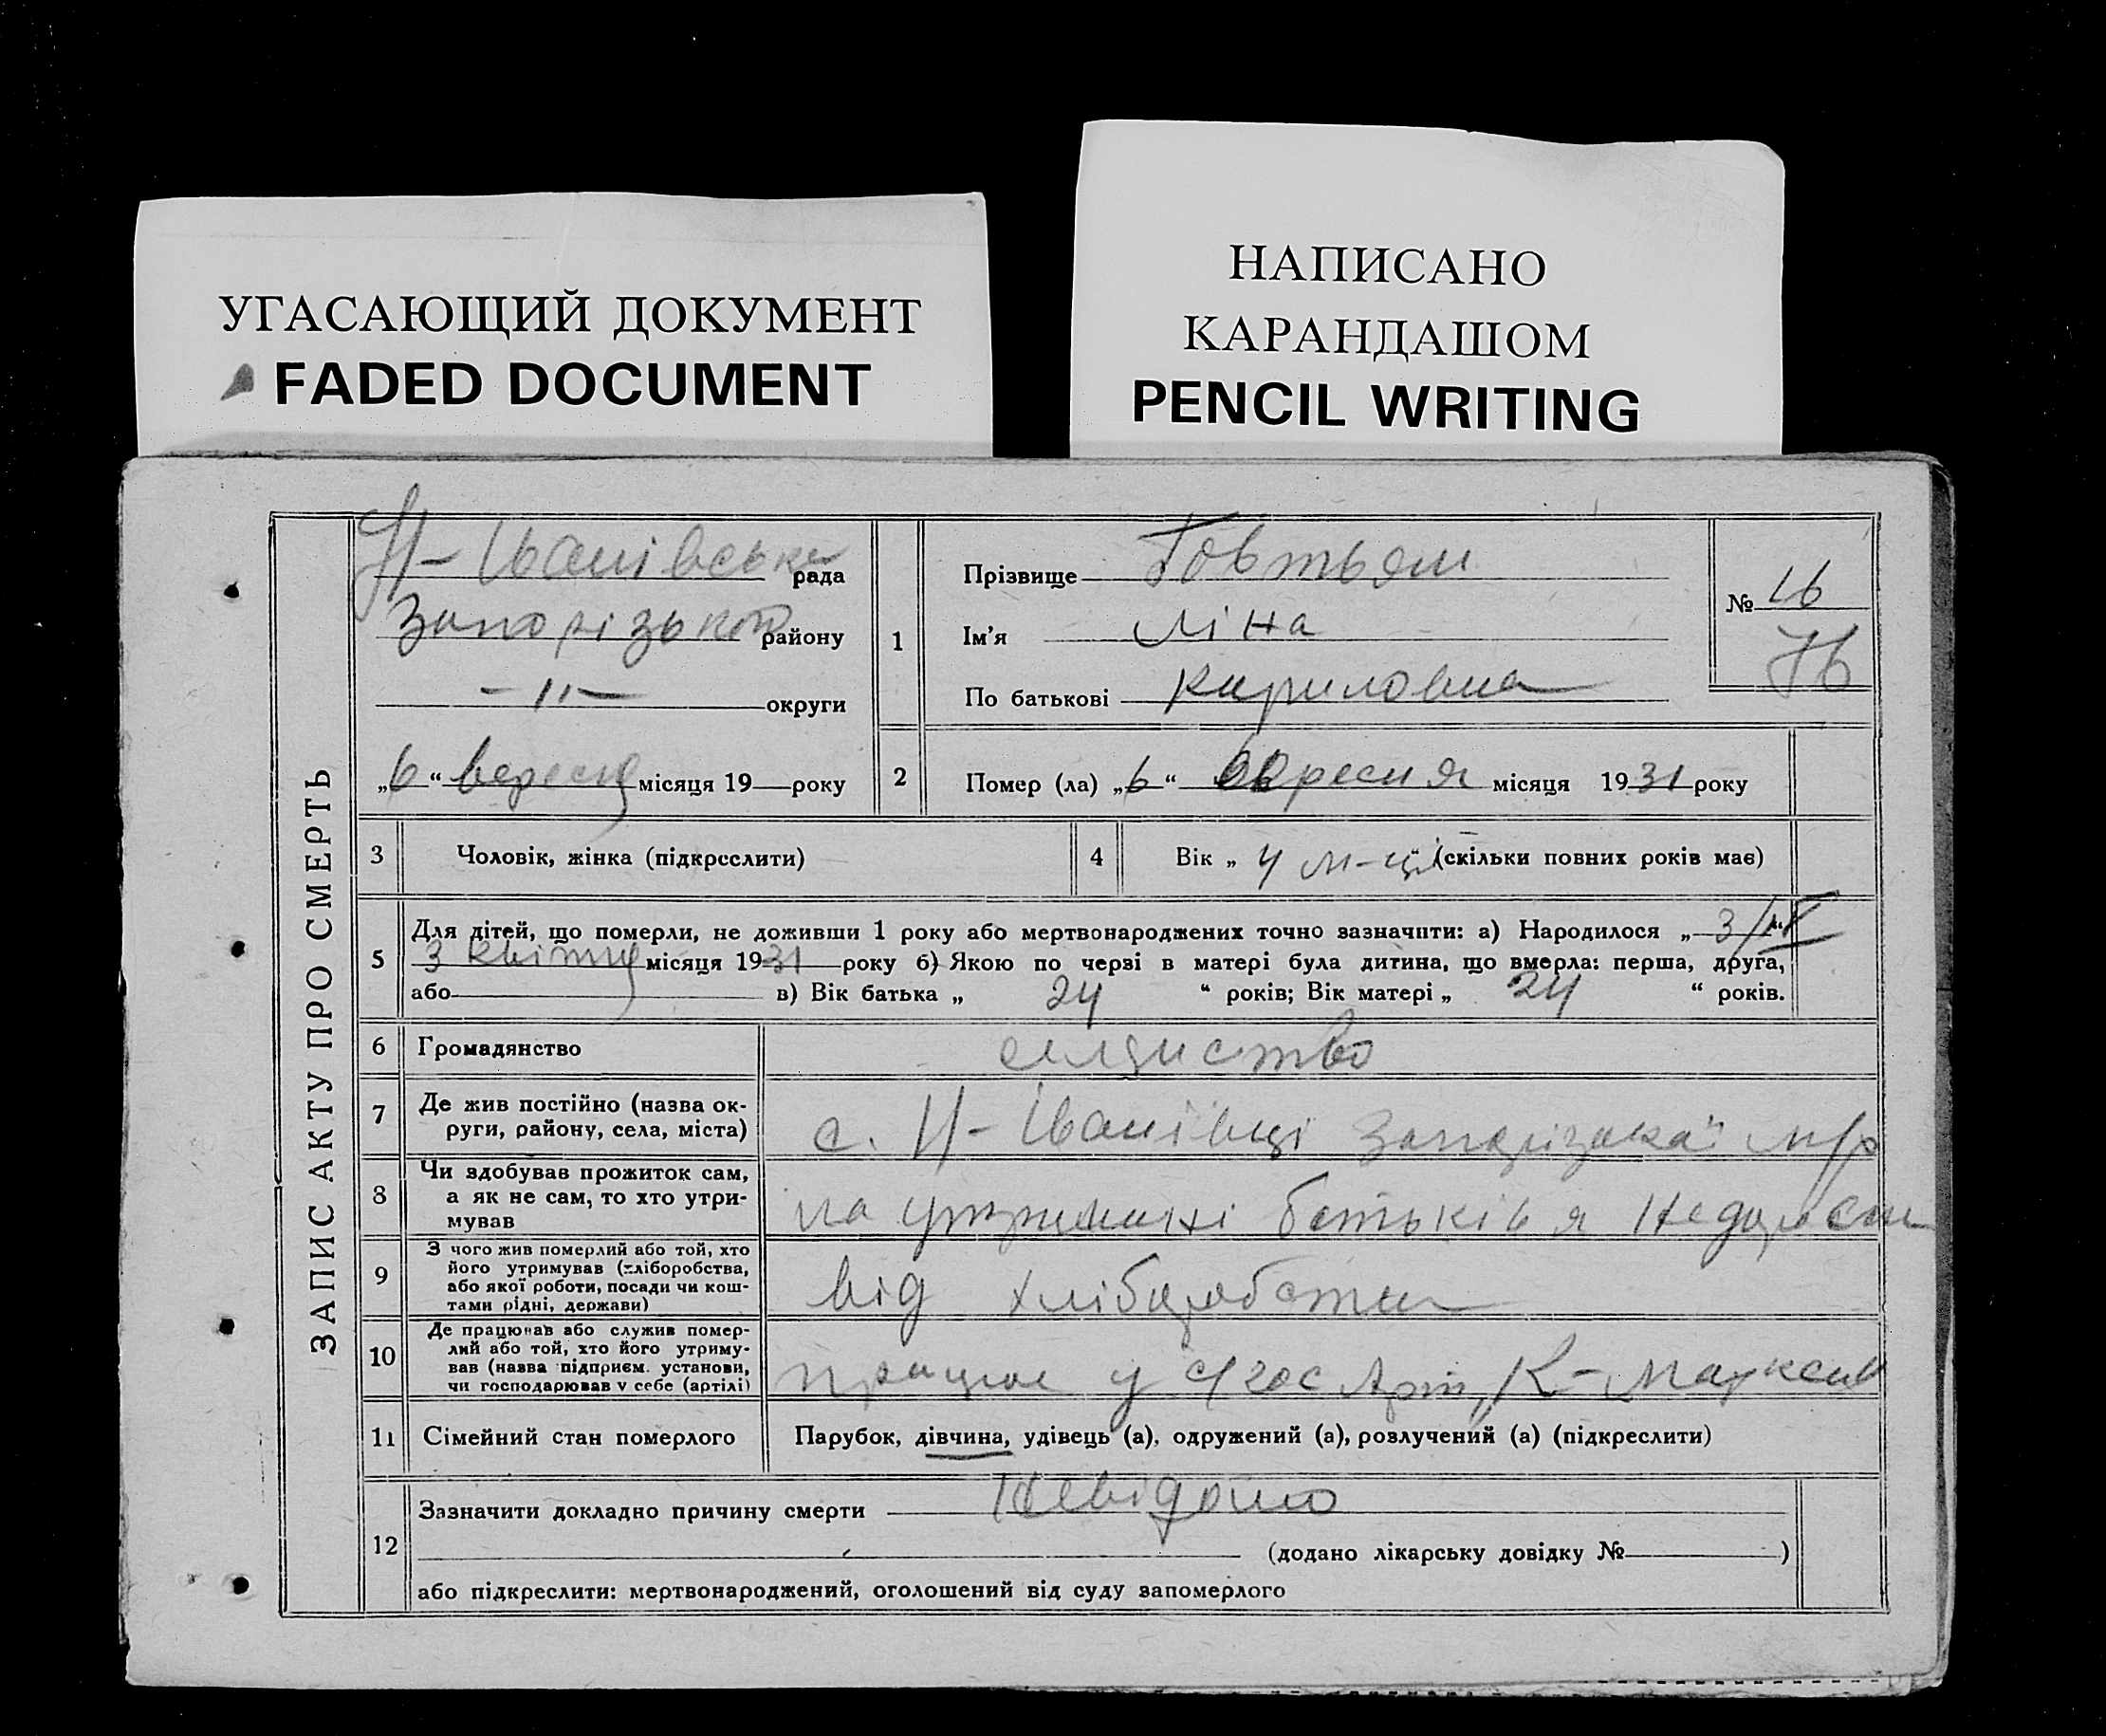 УГАСАЮЩИЙ ДОКУМЕНТ
FADED DOCUMENT
НАПИСАНО
КАРАНДАШОМ
PENCIL WRITING
ЗАПИС АКТУ ПРО СМЕРТЬ
Н-Іванівська рада
Запорізького району
-"- округи
„6“ вересня місяця 19 року
1
Прізвище Говтьян
Ім'я Ліна
По батькові Кириловна
№ 16
76
2
Помер (ла) „6“ вересня місяця 1931 року
3
Чоловік, жінка (підкреслити)
4
Вік „ 4 м-ці “ (скільки повних років має)
5
Для дітей, що померли, не доживши 1 року або мертвонароджених точно зазначити: а) Народилося „ 3/
3 квітня місяця 1931 року б) Якою по черзі в матері була дитина, що вмерла: перша, друга,
або в) Вік батька „ 24 “ років; Вік матері „ 24 “ років.
6
Громадянство
селянство
7
Де жив постійно (назва ок-
руги, району, села, міста)
с. Н-Іванівці Запорізької м/р
8
Чи здобував прожиток сам,
а як не сам, то хто утри-
мував
на утриманні батьків я
9
З чого жив померлий або той, хто
його утримував (хліборобства,
або якої роботи, посади чи кош-
тами рідні, держави)
від
10
Де працював або служив помер-
лий або той, хто його утриму-
вав (назва підприєм. установи,
чи господарював у себе (артілі)
працює у с/гос Арт, К-Маркса
11
Сімейний стан померлого
Парубок, дівчина, удівець (а), одружений (а), розлучений (а) (підкреслити)
12
Зазначити докладно причину смерти Невідомо
(додано лікарську довідку № )
або підкреслити: мертвонароджений, оголошений від суду запомерлого